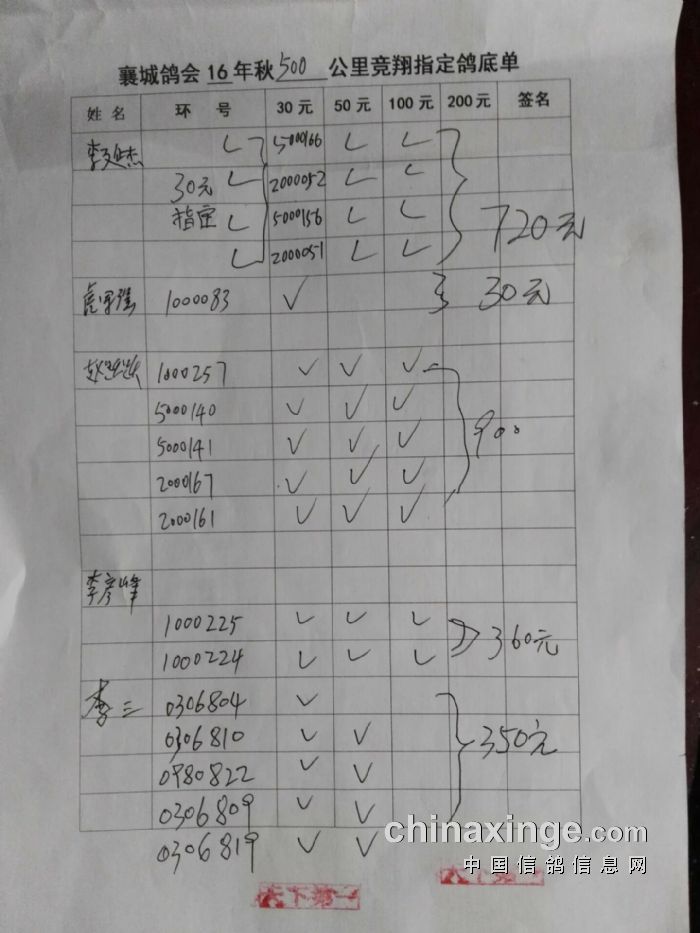 襄城鸽会 16 年秋 500 公里竞翔指定鸽底单
姓 名 环 号 30 元 50 元 100 元 200 元 签名
5000166 ✓ ✓
30元 ✓ 2000052 ✓ ✓
指定 ✓ 5000156 ✓ ✓ 720元
✓ 2000051 ✓ ✓
1000083 ✓ 30元
1000257 ✓ ✓ ✓
5000140 ✓ ✓ ✓
5000141 ✓ ✓ ✓ 900
2000167 ✓ ✓ ✓
2000161 ✓ ✓ ✓
李彦峰
1000225 ✓ ✓ ✓ 360元
1000224 ✓ ✓ ✓
李三 0306804 ✓
0306810 ✓ ✓ 350元
0980822 ✓ ✓
0306809 ✓ ✓
0306819 ✓ ✓
chinaxinge.com
中国信鸽信息网
天下第一